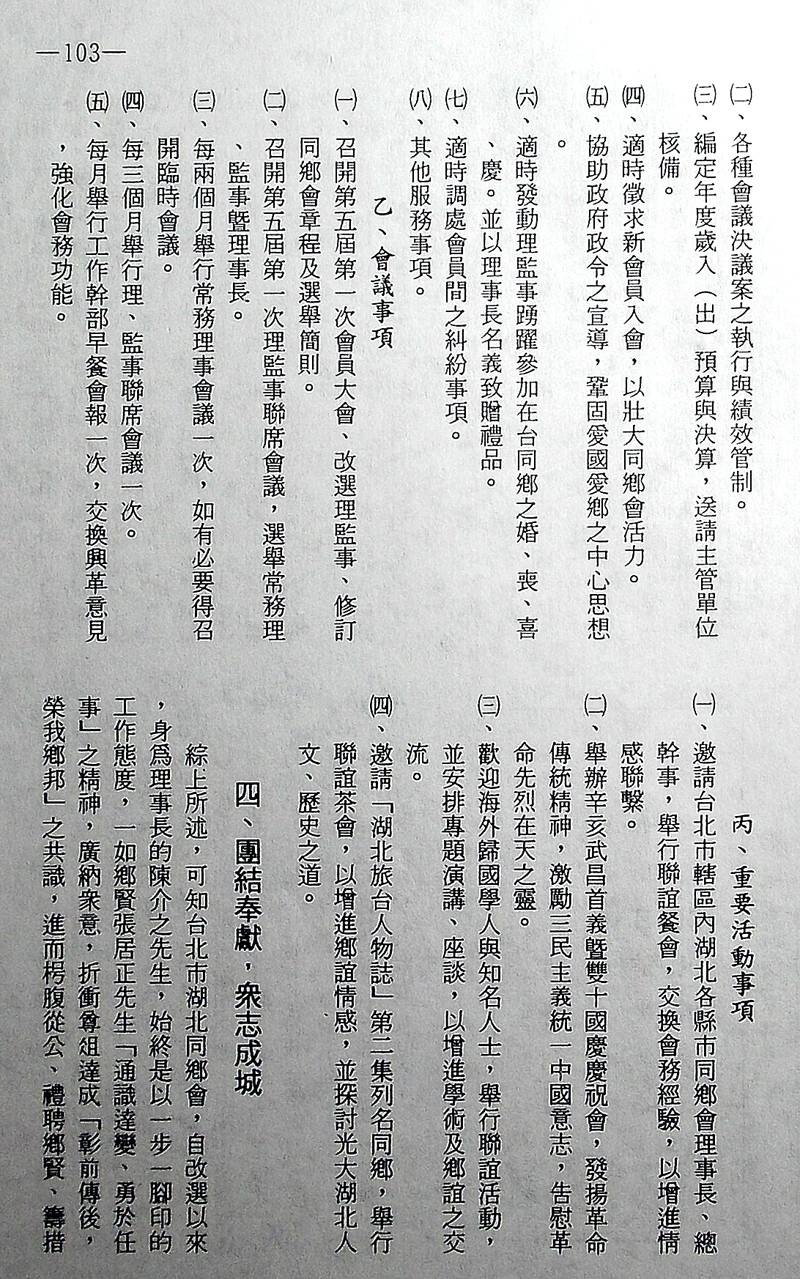 —103—
㈡、各種會議決議案之執行與績效管制。
㈢、編定年度歲入（出）預算與決算，送請主管單位
核備。
㈣、適時徵求新會員入會，以壯大同鄉會活力。
㈤、協助政府政令之宣導，鞏固愛國愛鄉之中心思想
。
㈥、適時發動理監事踴躍參加在台同鄉之婚、喪、喜
、慶。並以理事長名義致贈禮品。
㈦、適時調處會員間之糾紛事項。
㈧、其他服務事項。
乙、會議事項
㈠、召開第五屆第一次會員大會、改選理監事、修訂
同鄉會章程及選舉簡則。
㈡、召開第五屆第一次理監事聯席會議，選舉常務理
、監事暨理事長。
㈢、每兩個月舉行常務理事會議一次，如有必要得召
開臨時會議。
㈣、每三個月舉行理、監事聯席會議一次。
㈤、每月舉行工作幹部早餐會報一次，交換興革意見
，強化會務功能。
丙、重要活動事項
㈠、邀請台北市轄區內湖北各縣市同鄉會理事長、總
幹事，舉行聯誼餐會，交換會務經驗，以增進情
感聯繫。
㈡、舉辦辛亥武昌首義暨雙十國慶慶祝會，發揚革命
傳統精神，激勵三民主義統一中國意志，告慰革
命先烈在天之靈。
㈢、歡迎海外歸國學人與知名人士，舉行聯誼活動，
並安排專題演講、座談，以增進學術及鄉誼之交
流。
㈣、邀請「湖北旅台人物誌」第二集列名同鄉，舉行
聯誼茶會，以增進鄉誼情感，並探討光大湖北人
文、歷史之道。
四、團結奉獻，衆志成城
綜上所述，可知台北市湖北同鄉會，自改選以來
，身爲理事長的陳介之先生，始終是以一步一腳印的
工作態度，一如鄉賢張居正先生「通識達變、勇於任
事」之精神，廣納衆意，折衝尊俎達成「彰前傳後，
榮我鄉邦」之共識，進而枵腹從公、禮聘鄉賢、籌措